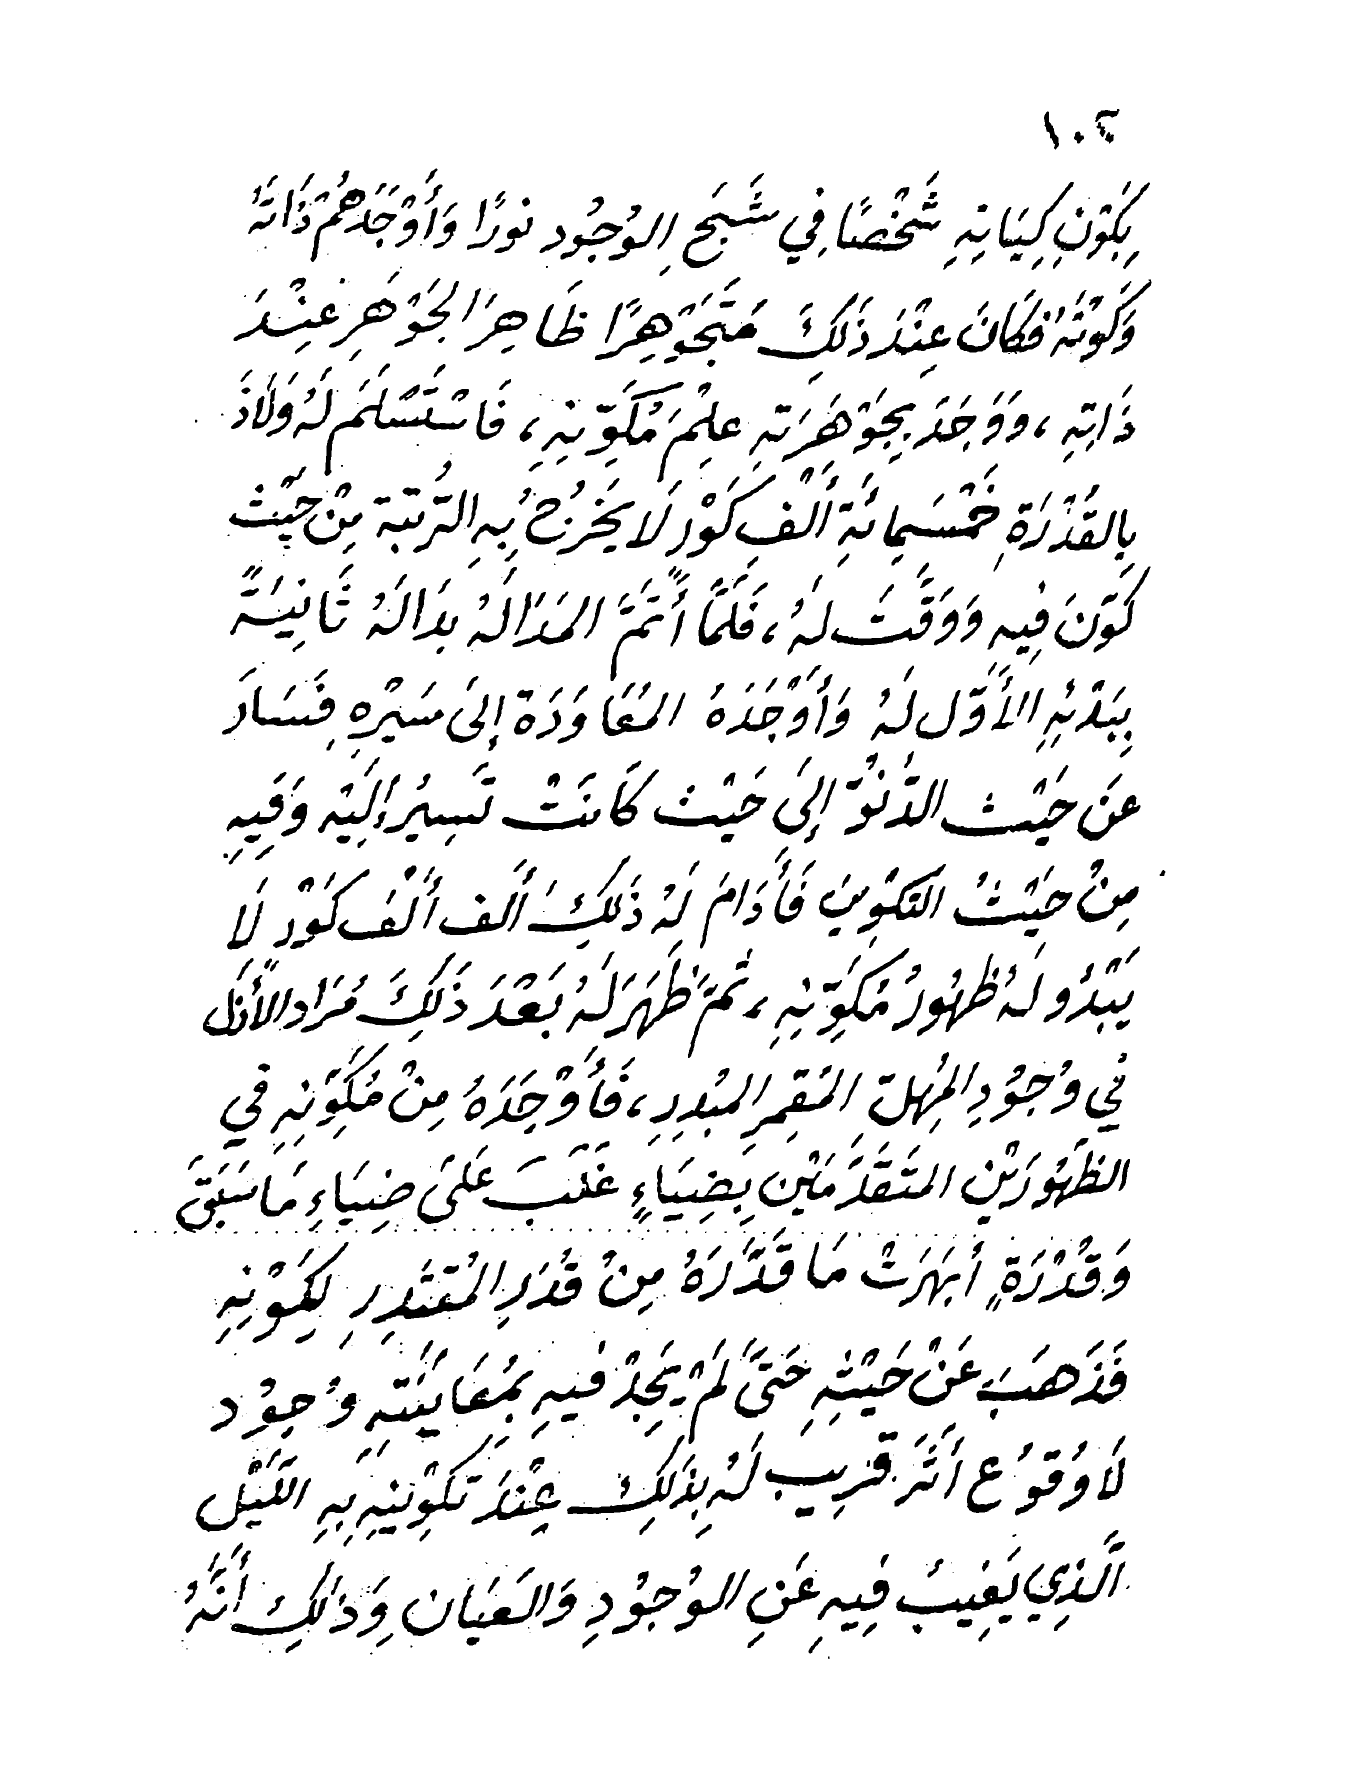 ١٠٢
بِكَوْنِ كِيَانِهِ شَخْصًا فِي شَبَحِ الوُجُود نورًا وَأَوْجَدَهُمْ ذَاتَهُ
وَكَوْنَهُ فَكَانَ عِنْدَ ذَلِكَ مُتَجَوْهِرًا ظَاهِرَ الجَوْهَرِ عِنْدَ
ذَاتِهِ ، وَوَجَدَ بِجَوْهَرَتِهِ عِلْمَ مُكَوِّنِهِ ، فَاسْتَسْلَمَ لَهُ وَلَاذَ
بِالقُدْرَةِ خَمْسَمِائَةِ أَلْفِ كَوْرٍ لَا يَخْرُجُ بِهِ التَّرْتُبَة مِنْ حَيْث
كَوَّنَ فِيهِ وَوَقَّتَ لَهُ ، فَلَمَّا أَتَمَّ المَدَا لَهُ بدَا لَهُ ثَانِيَةً
بِبَدْئِهِ الأَوَّلِ لَهُ وَأَوْجَدَهُ المُعَاوَدَة إِلَى مَسِيْرِهِ فَسَارَ
عَنْ حَيْث الدُّنُوِّ إِلَى حَيْث كَانَتْ تَسِيرُ إِلَيْه وَفِيهِ
مِنْ حَيْثُ التَكْوِينِ فَأَدَامَ لَهُ ذَلِكَ أَلْف أَلْف كَوْرٍ لَا
يَبْدُو لَهُ ظُهُورُ مُكَوِّنِهِ ، ثُمَّ ظَهَرَ لَهُ بَعْدَ ذَلِكَ مُرَاد الأَزَل
فِي وُجُودِ المُهِلِّ المُقْمِرِ المُبْدِرِ ، فَأَوْجَدَهُ مِنْ مُكَوِّنِهِ فِي
الظُهُورَيْنِ المُتَقَدِّمَيْنِ بِضِيَاءٍ غَلَبَ عَلَى ضِيَاءِ مَا سَبَقَ
وَقُدْرَةٍ أَبْهَرَتْ مَا قَدَّرَهُ مِنْ قُدَرِ المُقْتَدِرِ لِكَوْنِهِ
فَذَهَبَ عَنْ حَيْثِهِ حَتَّى لَمْ يَجِدْ فيهِ بِمُعَايَنَتِهِ وُجُود
لَا وُقوُع أَثَرَ قَرِيبٍ لَهُ بِذَلِكَ عِنْدَ تَكْوِينِهِ بِهِ اللَّيْل
الَّذِي يَغِيبُ فِيهِ عَنِ الوُجُودِ وَالعَيَان وَذَلِكَ أَنَّهُ